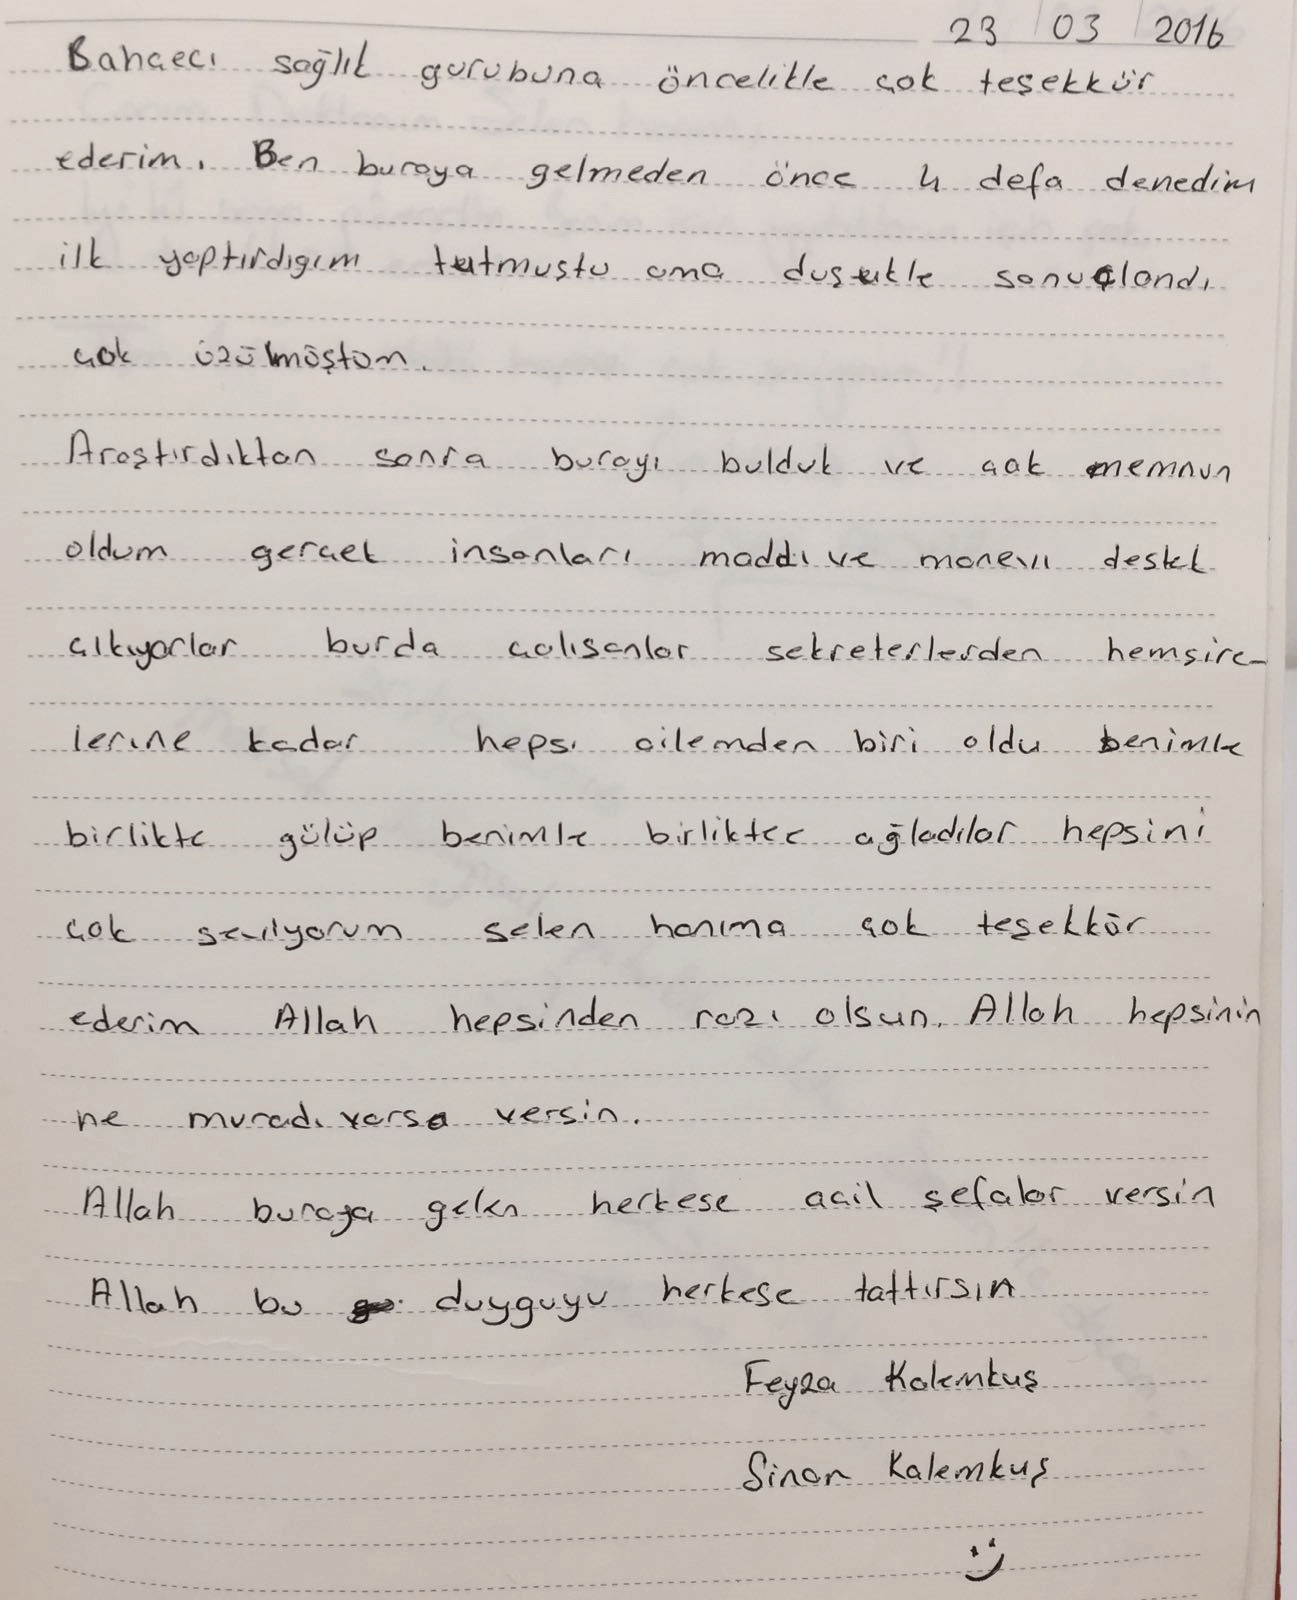 23 / 03 / 2016
Bahçeci sağlık gurubuna öncelikle çok teşekkür
ederim. Ben buraya gelmeden önce 4 defa denedim
ilk yaptırdıgım tutmuştu ama duşukle sonuçlandı
çok üzülmüştüm.
Araştırdıktan sonra burayı bulduk ve çok memnun
oldum gerçek insanları maddi ve manevi destek
çıkıyorlar burda çalısanlar sekreterlerden hemşire-
lerıne kadar hepsı ailemden biri oldu benimle
birlikte gülüp benimle birliktee ağladılar hepsini
çok seviyorum selen hanıma çok teşekkür
ederim Allah hepsinden razı olsun. Allah hepsinin
ne muradı varsa versin.
Allah buraya gelen herkese acil şefalar versin
Allah bu duyguyu herkese tattırsın
Feyza Kalemkuş
Sinan Kalemkuş